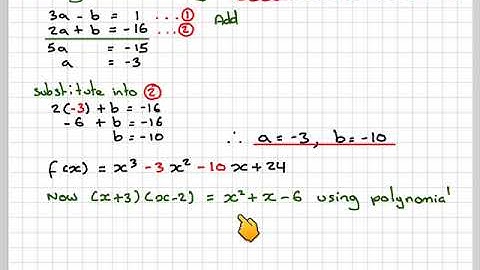 3a - b = 1 ...① Add
2a + b = -16 ...②
5a = -15
a = -3
substitute into ②
2(-3) + b = -16
-6 + b = -16
b = -10
∴ a = -3, b = -10
f(x) = x³ - 3x² - 10x + 24
Now (x+3)(x-2) = x² + x - 6 using polynomial